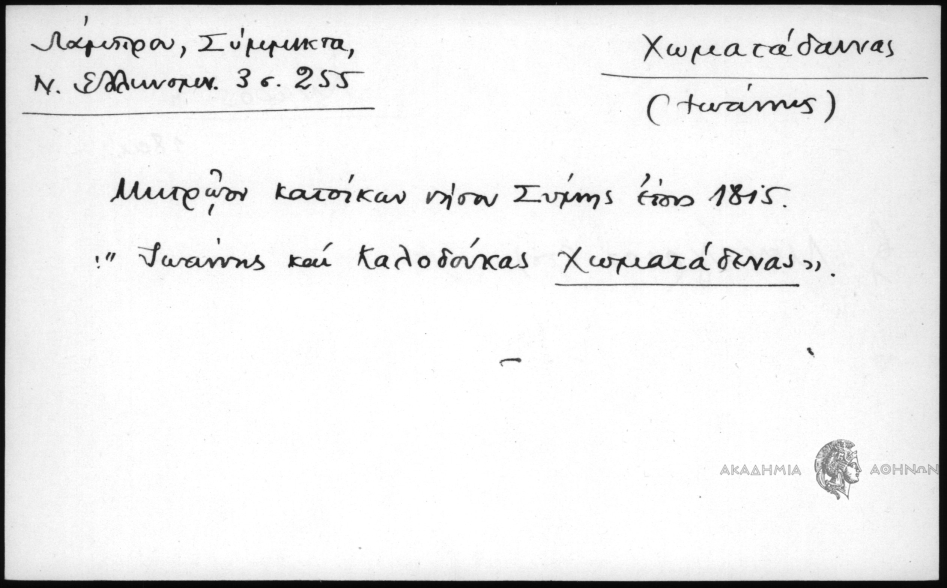 Λάμπρου, Σύμμικτα,
Ν. Ελληνομν. 3 σ. 255
Χωματάδαινας
(Ιωάννης)
Μητρῷον κατοίκων νήσου Σύμης ἔτους 1815.
:" Ἰωάννης καί Καλοδούκας Χωματάδενας».
ΑΚΑΔΗΜΙΑ ΑΘΗΝΩΝ